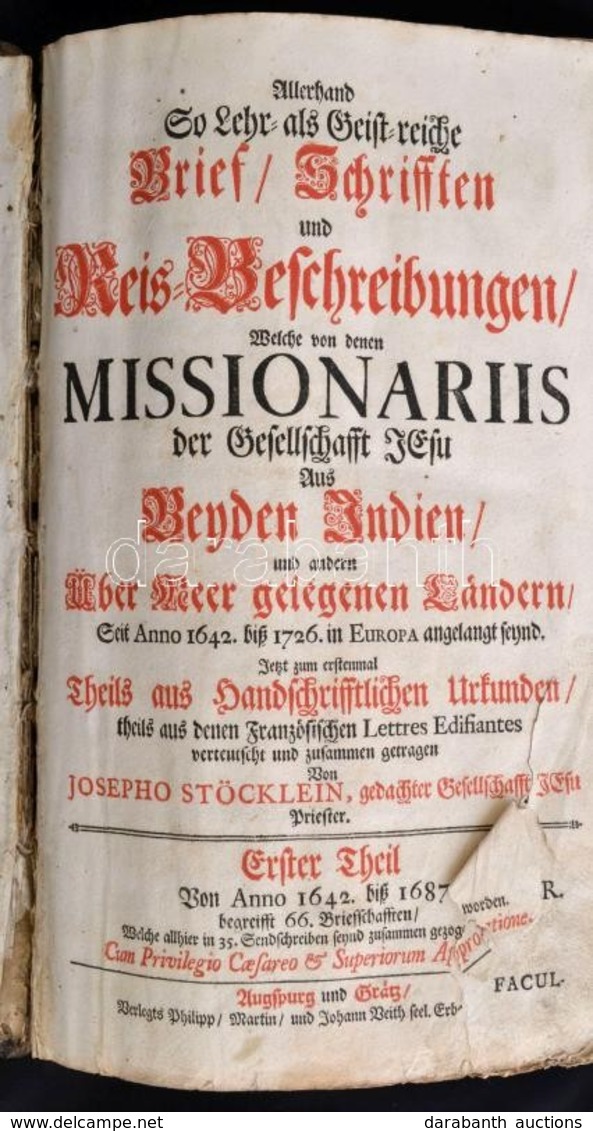 Allerhand
So Lehr- als Geist-reiche
Brief/ Schrifften
und
Reis-Beschreibungen/
Welche von denen
MISSIONARIIS
der Gesellschafft JEsu
Aus
Beyden Indien/
und andern
Über Meer gelegenen Ländern/
Seit Anno 1642. biß 1726. in EUROPA angelangt seynd.
Jetzt zum erstenmal
Theils aus Handschrifftlichen Urkunden/
theils aus denen Französischen Lettres Edifiantes
verteutscht und zusammen getragen
Von
JOSEPHO STÖCKLEIN, gedachter Gesellschafft JEsu
Priester.
Erster Theil
Von Anno 1642. biß 1687
begreifft 66. Brieffschafften/
Welche allhier in 35. Sendschreiben seynd zusammen gezog worden. R.
Cum Privilegio Cæsareo & Superiorum Approbatione.
FACUL-
Augspurg und Grätz/
Verlegts Philipp/ Martin/ und Johann Veith seel. Erb-
darabanth
darabanth auctions